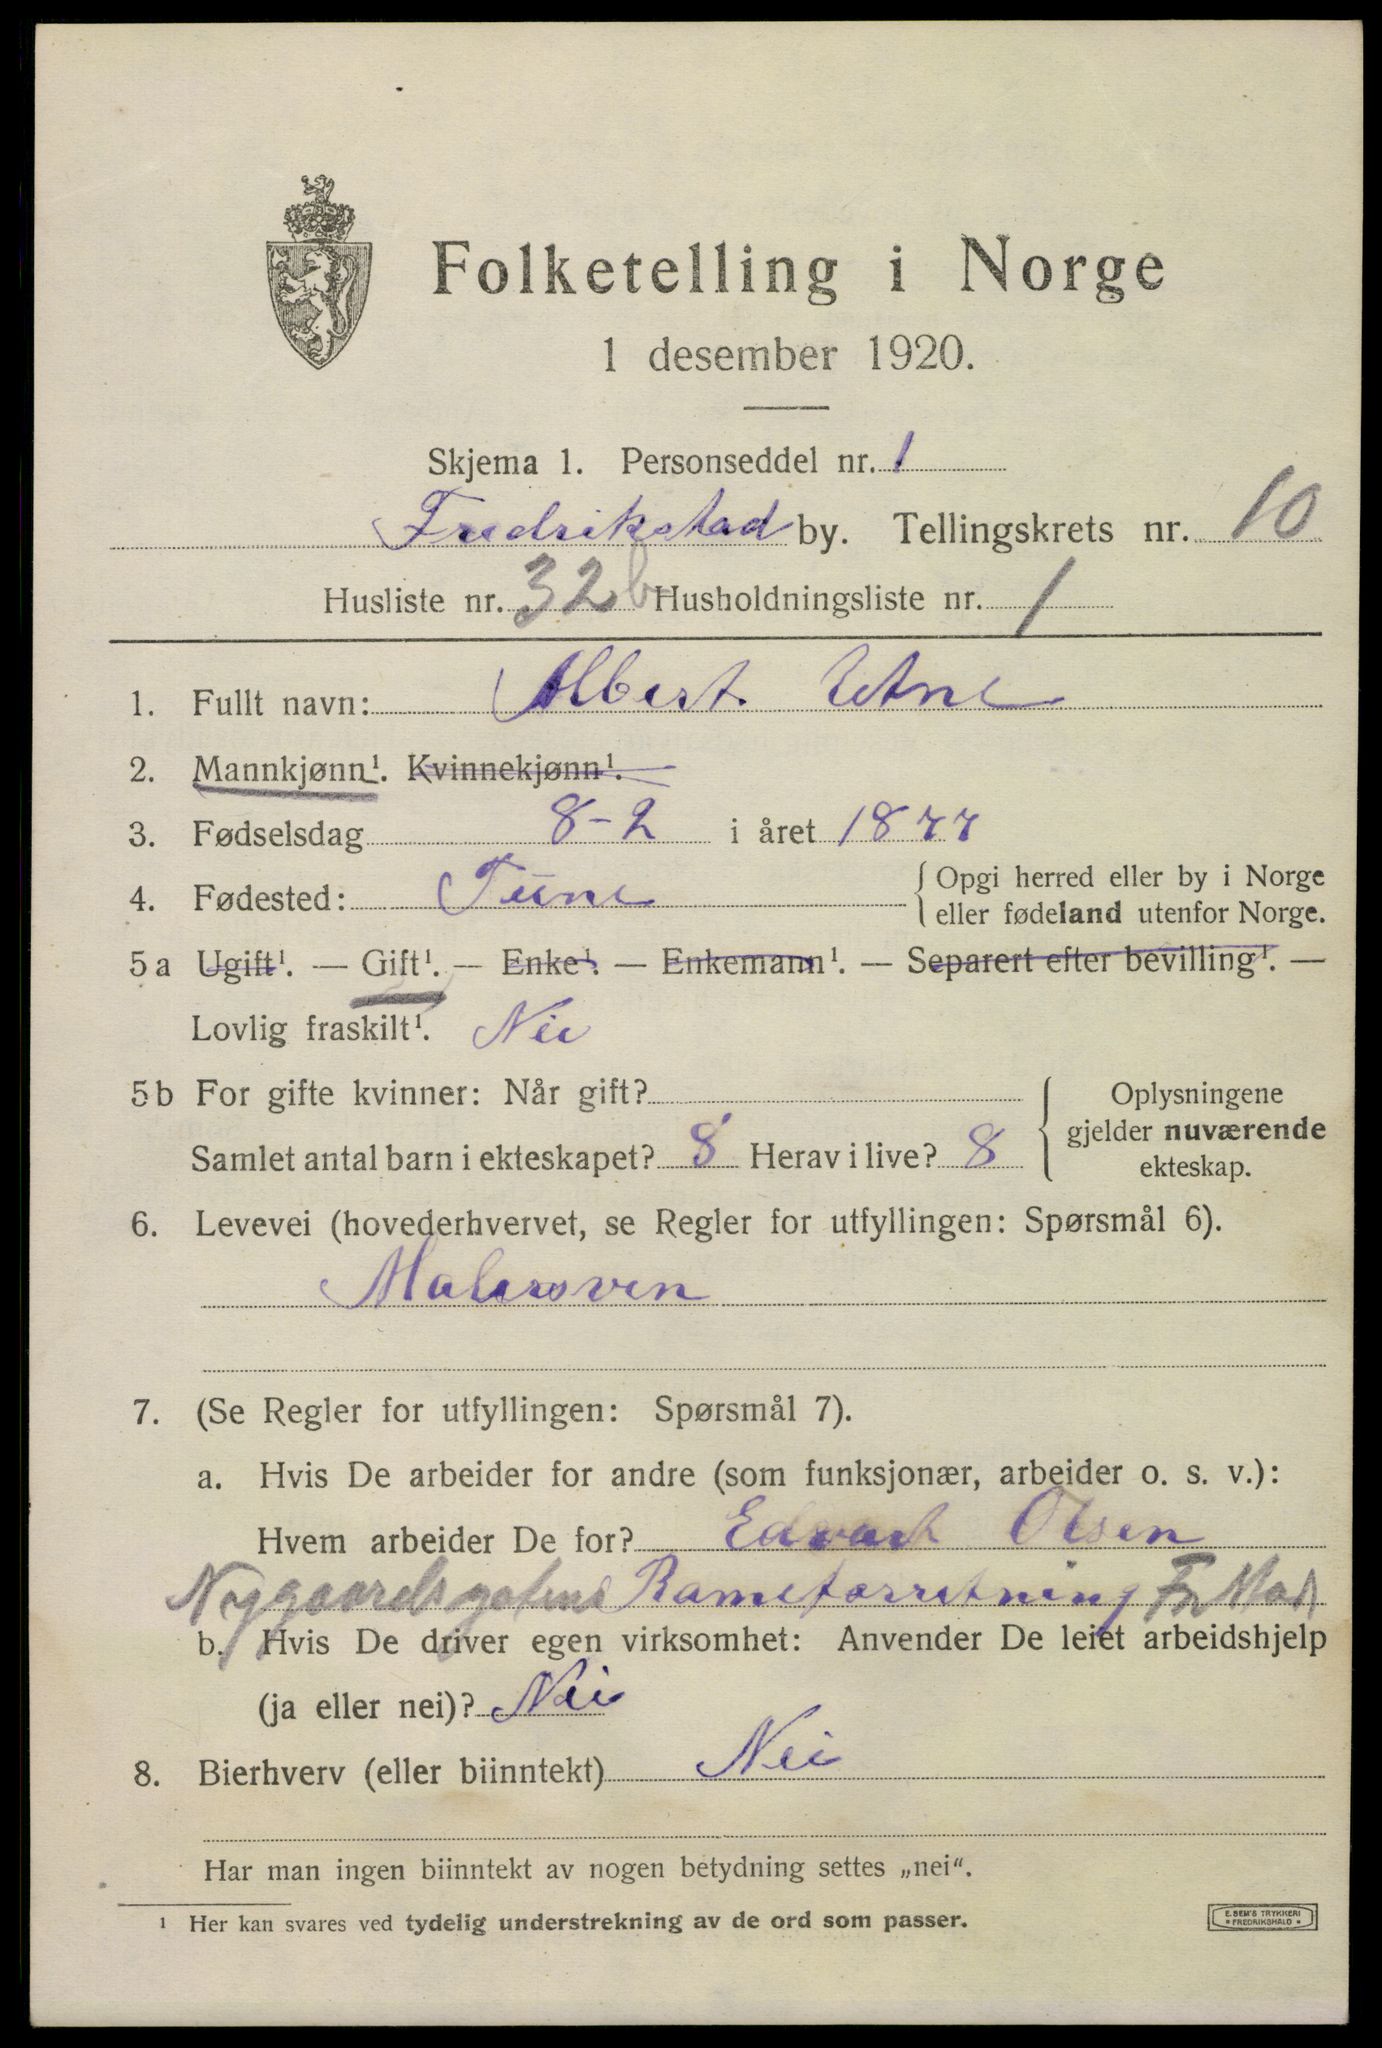 Folketelling i Norge
1 desember 1920.
Skjema 1. Personseddel nr. 1
Fredrikstad by. Tellingskrets nr. 10
Husliste nr. 32 b Husholdningsliste nr. 1
1. Fullt navn: Albert Etne
2. Mannkjønn¹. Kvinnekjønn¹.
3. Fødselsdag 8-2 i året 1877
4. Fødested: Tune { Opgi herred eller by i Norge
eller fødeland utenfor Norge.
5a Ugift¹. — Gift¹. — Enke¹. — Enkemann¹. — Separert efter bevilling¹. —
Lovlig fraskilt¹. Nei
5b For gifte kvinner: Når gift? { Oplysningene
gjelder nuværende
ekteskap.
Samlet antal barn i ekteskapet? 8 Herav i live? 8
6. Levevei (hovederhvervet, se Regler for utfyllingen: Spørsmål 6).
Malersven
7. (Se Regler for utfyllingen: Spørsmål 7).
a. Hvis De arbeider for andre (som funksjonær, arbeider o. s. v.):
Hvem arbeider De for? Edvart Olsen
Nygaardsgatens Rameforretning Fr.stad
b. Hvis De driver egen virksomhet: Anvender De leiet arbeidshjelp
(ja eller nei)? Nei
8. Bierhverv (eller biinntekt) Nei
Har man ingen biinntekt av nogen betydning settes „nei“.
¹ Her kan svares ved tydelig understrekning av de ord som passer.
E. SEM'S TRYKKERI
* FREDRIKSHALD *